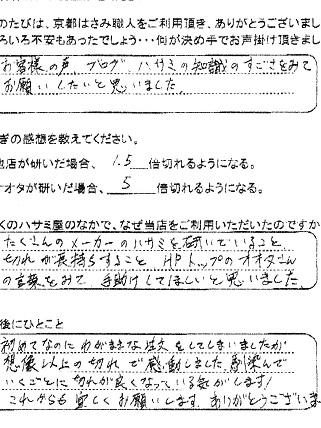 のたびは、京都はさみ職人をご利用頂き、ありがとうございまし
ろいろ不安もあったでしょう・・・何が決め手でお声掛け頂きまし
お客様の声、ブログ、ハサミの知識のすごさをみて
お願いしたいと思いました。
ぎの感想を教えてください。
他店が研いだ場合、 1.5 倍切れるようになる。
オオタが研いだ場合、 5 倍切れるようになる。
くのハサミ屋のなかで、なぜ当店をご利用いただいたのですか
たくさんのメーカーのハサミを研いでいること
切れが長持ちすること HPトップのオオタさん
の言葉をみて 手助けしてほしいと思いました。
後にひとこと
初めてなのにわがままな注文をしてしまいましたが
想像以上の切れで感動しました。馴染んで
いくごとに切れが良くなっている気がします!
これからも宜しくお願いします。ありがとうございま